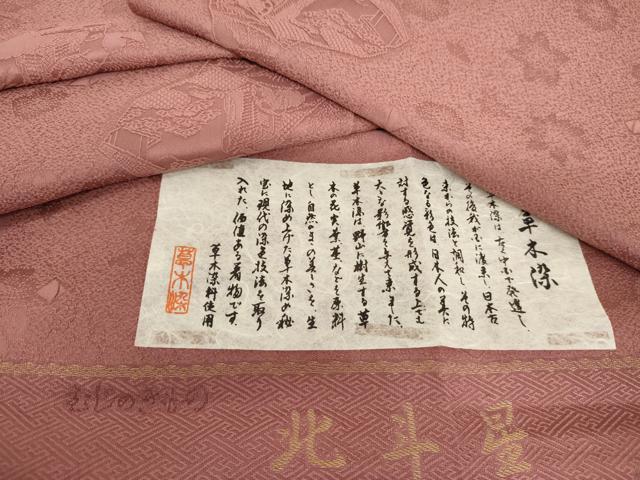 草木染
草木染は古く中国で発達し、
その後我が国に渡来し、日本古
来からの技法と調和し、その特
色ある彩色は、日本人の美に
対する感覚を形成する上でも
大きな影響を与えて来ました。
草木染は、野山に樹生する草
木の花、実、葉、茎などを原料
とし、自然のままの美しさを、生
地に染め上げた草木染の秘
宝に現代の染色技法を取り
入れた、価値ある着物です。
草木染料使用
草木染
北斗星